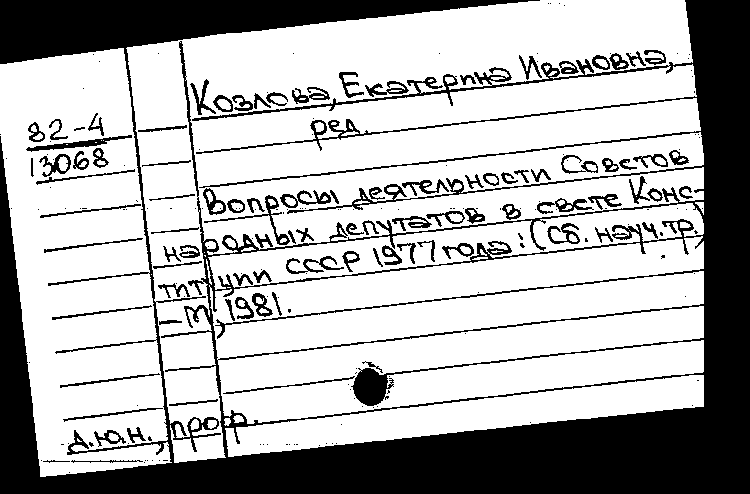 Козлова, Екатерина Ивановна,
ред.
82-4
13068
Вопросы деятельности Советов
народных депутатов в свете Конс-
титуции СССР 1977 года: (Сб. науч. тр.)
– М., 1981.
д.ю.н., проф.